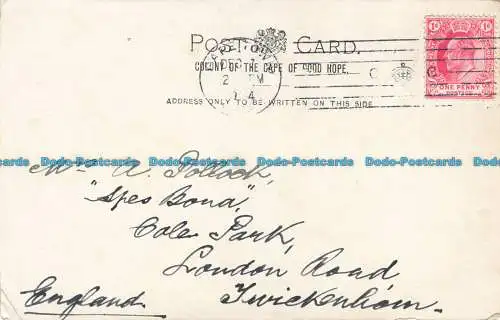 POST CARD.
COLONY OF THE CAPE OF GOOD HOPE.
ADDRESS ONLY TO BE WRITTEN ON THIS SIDE
1d 1d
ONE PENNY
Dodo-Postcards Dodo-Postcards Dodo-Postcards Dodo-Postcards Dodo-Postcards
A. Pollock,
"Spes Bona",
Cole Park,
London Road
England. Twickenham.